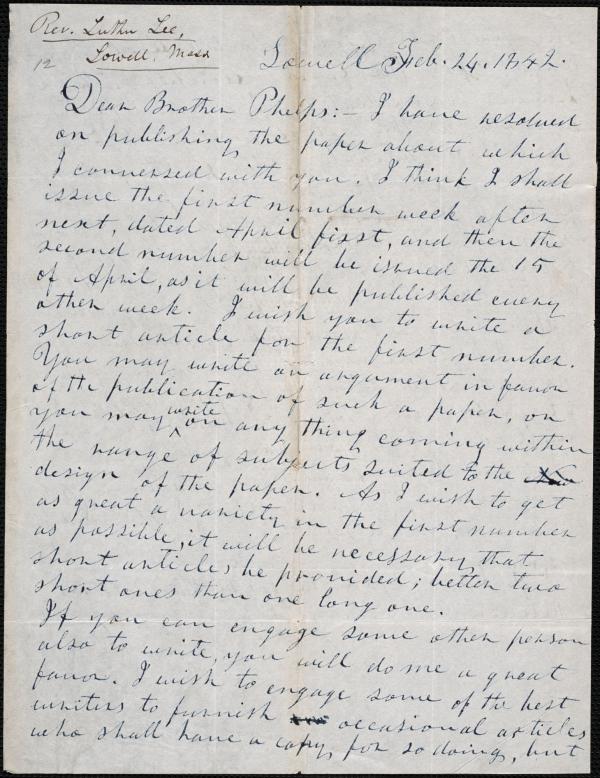 Rev. Luther Lee,
Lowell, Mass
12
Lowell Feb. 24. 1842.
Dear Brother Phelps:- I have resolved
on publishing the paper about which
I conversed with you. I think I shall
issue the first number week after
next, dated April first, and then the
second number will be issued the 15
of April, as it will be published every
other week. I wish you to write a
short article for the first number.
You may write an argument in favor
of the publication of such a paper, or
you may write on any thing coming within
the range of subjects suited to the
design of the paper. As I wish to get
as great a variety in the first number
as possible, it will be necessary that
short articles be provided; better two
short ones than one long one.
If you can engage some other person
also to write, you will do me a great
favor. I wish to engage some of the best
writers to furnish occasional articles
who shall have a copy for so doing, but